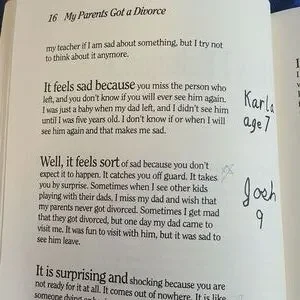 16 My Parents Got a Divorce
my teacher if I am sad about something, but I try not
to think about it anymore.
It feels sad because you miss the person who
left, and you don't know if you will ever see him again.
I was just a baby when my dad left, and I didn't see him
until I was five years old. I don't know if or when I will
see him again and that makes me sad.
Karla
age 7
Well, it feels sort of sad because you don't
expect it to happen. It catches you off guard. It takes
you by surprise. Sometimes when I see other kids
playing with their dads, I miss my dad and wish that
my parents never got divorced. Sometimes I get mad
that they got divorced, but one day my dad came to
visit me. It was fun to visit with him, but it was sad to
see him leave.
Josh
9
It is surprising and shocking because you are
not ready for it at all. It comes out of nowhere. It is like